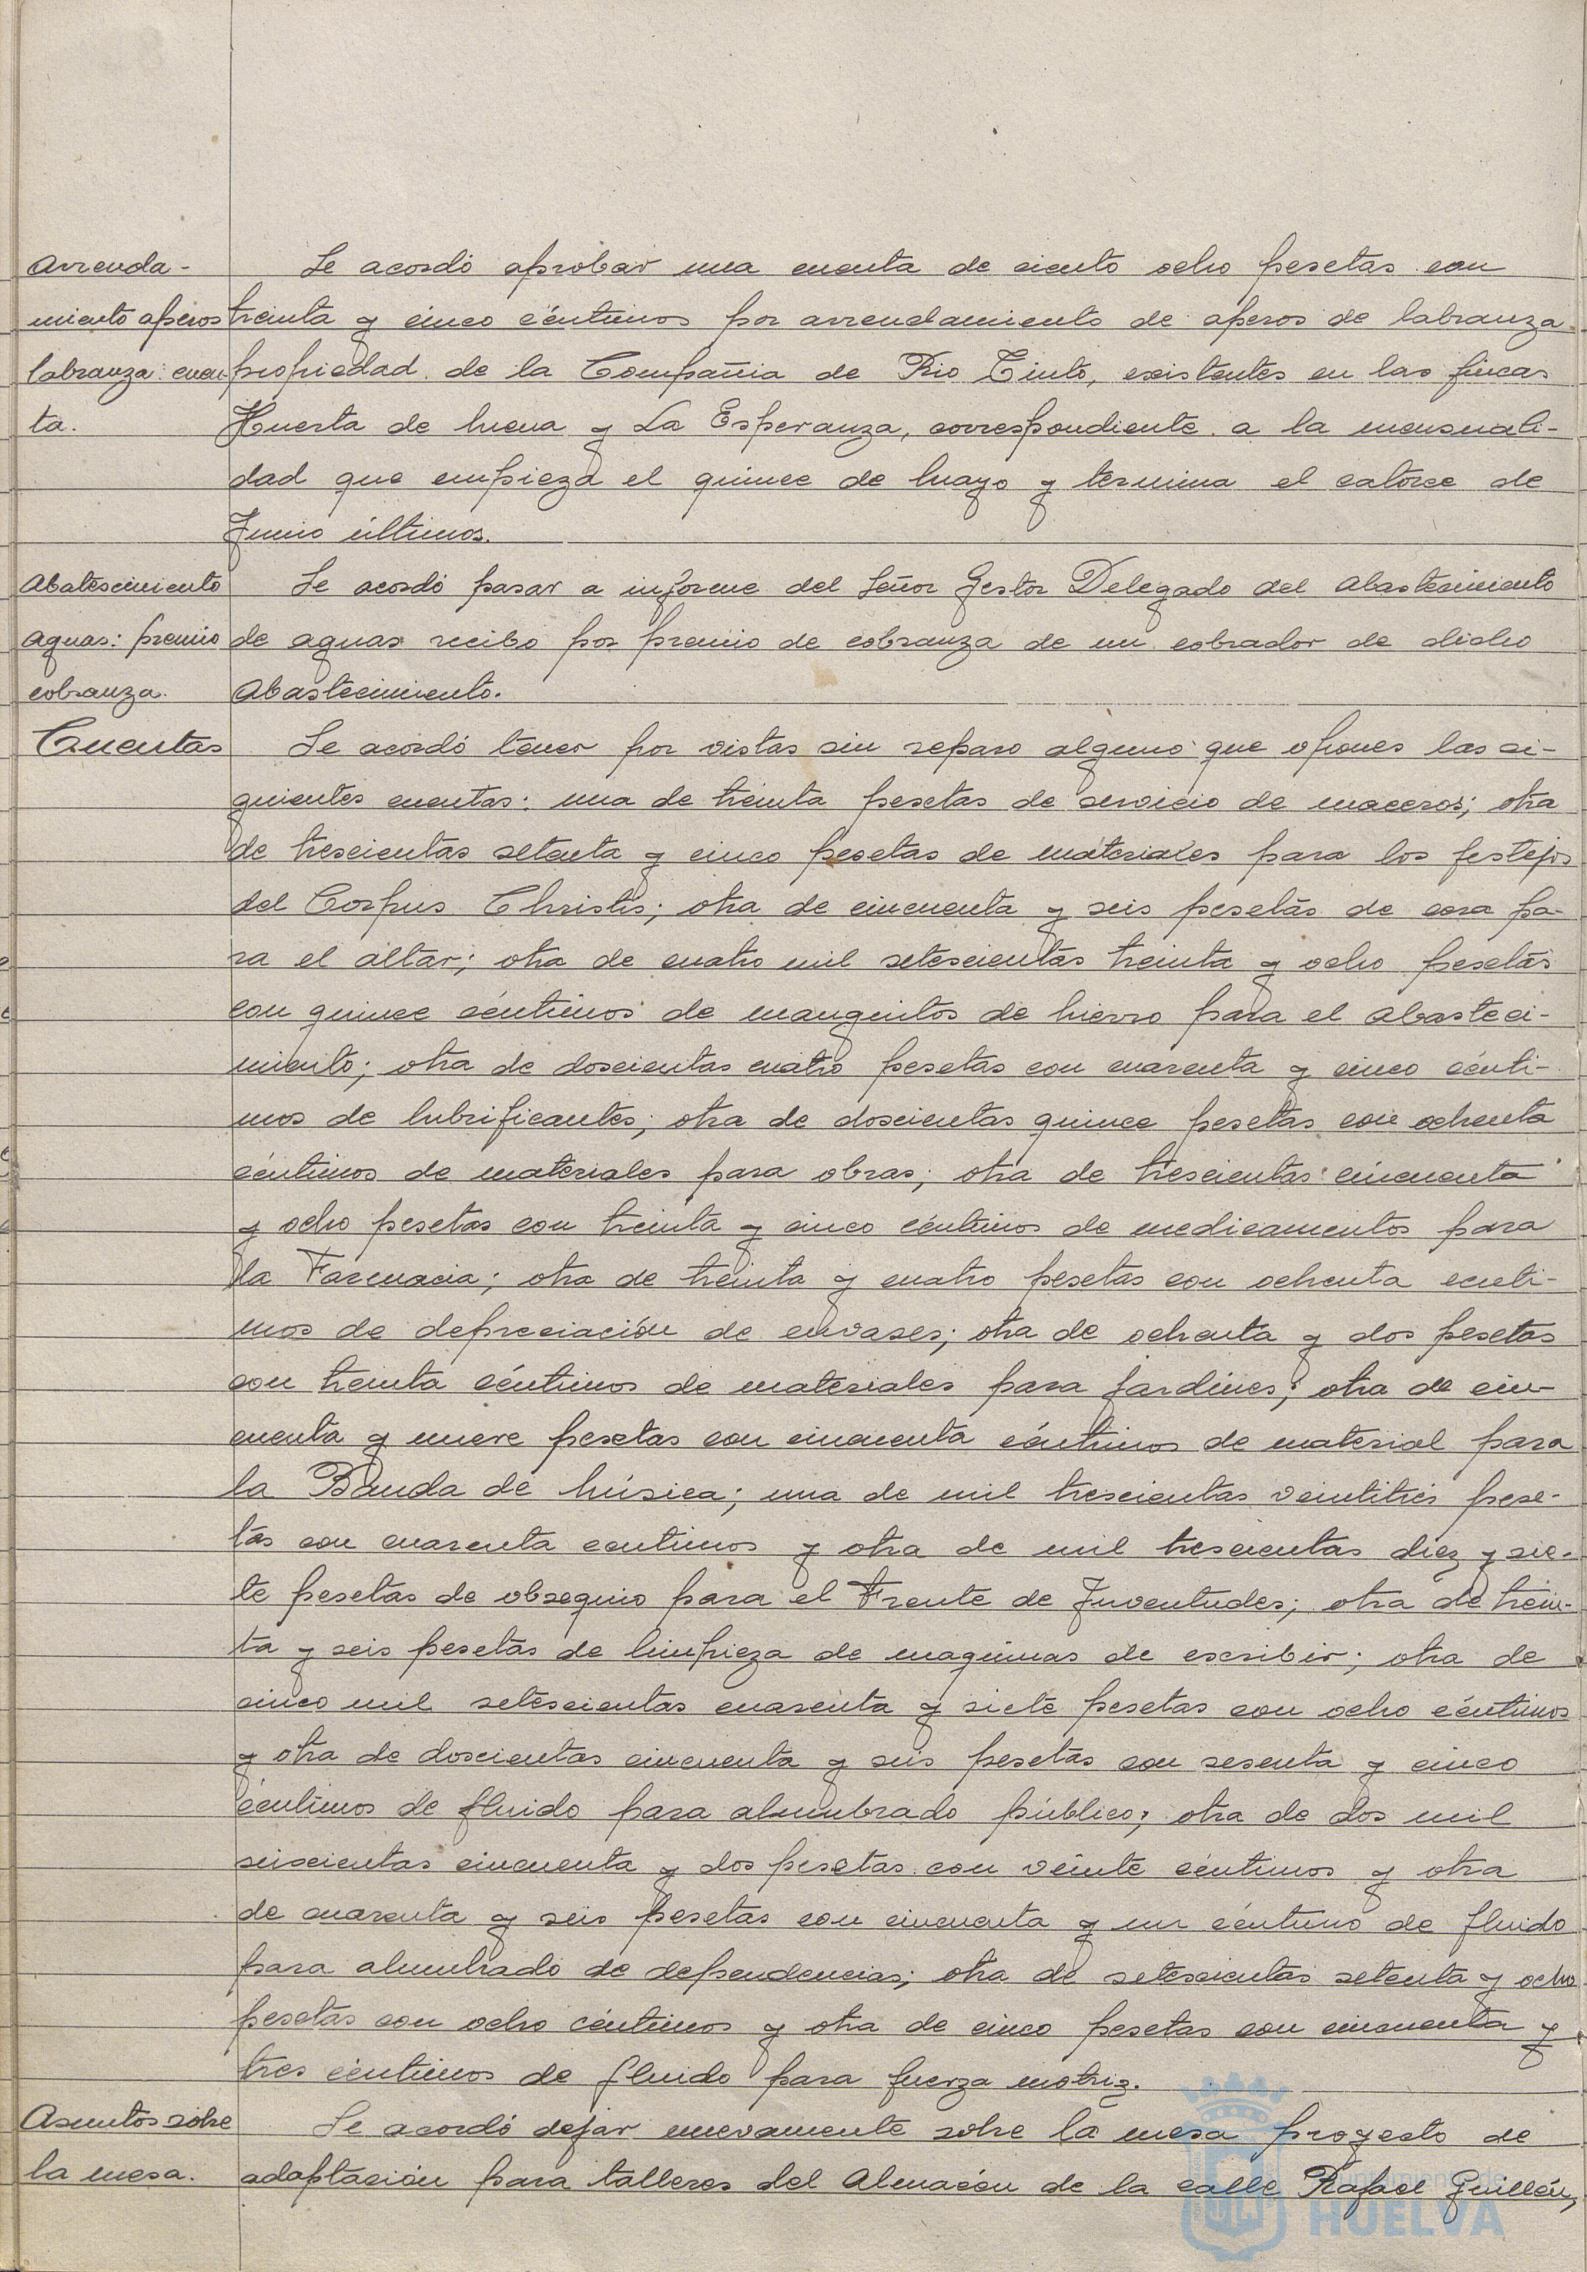 Arrenda-
miento aperos
labranza: cuen-
ta.
Se acordó aprobar una cuenta de ciento ocho pesetas con
treinta y cinco céntimos por arrendamiento de aperos de labranza
propiedad de la Compañia de Rio Tinto, existentes en las fincas
Huerta de Mena y La Esperanza, correspondiente a la mensuali-
dad que empieza el quince de Mayo y termina el catorce de
Junio últimos.
Abastecimiento
aguas: premio
cobranza.
Se acordó pasar a informe del Señor Gestor Delegado del Abastecimiento
de aguas recibo por premio de cobranza de un cobrador de dicho
Abastecimiento.
Cuentas
Se acordó tener por vistas sin reparo alguno que opones las si-
guientes cuentas: una de treinta pesetas de servicio de maceros; otra
de trescientas setenta y cinco pesetas de materiales para los festejos
del Corpus Christis; otra de cincuenta y seis pesetas de cera pa-
ra el altar; otra de cuatro mil setescientas treinta y ocho pesetas
con quince céntimos de manguitos de hierro para el abasteci-
miento; otra de doscientas cuatro pesetas con cuarenta y cinco cénti-
mos de lubrificantes; otra de doscientas quince pesetas con ochenta
céntimos de materiales para obras; otra de trescientas cincuenta
y ocho pesetas con treinta y cinco céntimos de medicamentos para
la Farmacia; otra de treinta y cuatro pesetas con ochenta centi-
mos de depreciación de envases; otra de ochenta y dos pesetas
con treinta céntimos de materiales para jardines; otra de cin-
cuenta y nueve pesetas con cincuenta céntimos de material para
la Banda de Música; una de mil trescientas veintitrés pese-
tas con cuarenta centimos y otra de mil trescientas diez y sie-
te pesetas de obsequio para el Frente de Juventudes; otra de trein-
ta y seis pesetas de limpieza de maquinas de escribir; otra de
cinco mil setescientas cuarenta y siete pesetas con ocho céntimos
y otra de doscientas cincuenta y seis pesetas con sesenta y cinco
céntimos de fluido para alumbrado público; otra de dos mil
seiscientas cincuenta y dos pesetas con veinte céntimos y otra
de cuarenta y seis pesetas con cincuenta y un céntimo de fluido
para alumbrado de dependencias; otra de setescientas setenta y ocho
pesetas con ocho céntimos y otra de cinco pesetas con cincuenta y
tres céntimos de fluido para fuerza motriz.
Asuntos sobre
la mesa.
Se acordó dejar nuevamente sobre la mesa proyecto de
adaptación para talleres del Almacén de la calle Rafael Guillén,
Ayuntamiento de
HUELVA